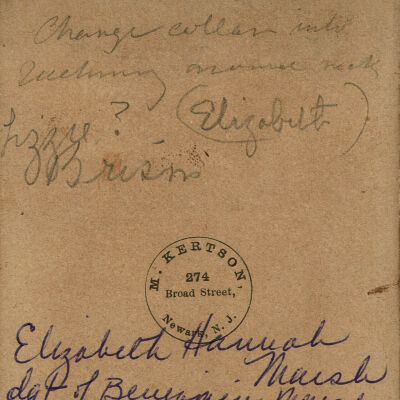 Change collar into
ruching around neck
Lizzie? (Elizabeth)
M. KERTSON,
274
Broad Street,
Newark, N. J.
Elizabeth Hannah
Marsh
dgt of Benjamin